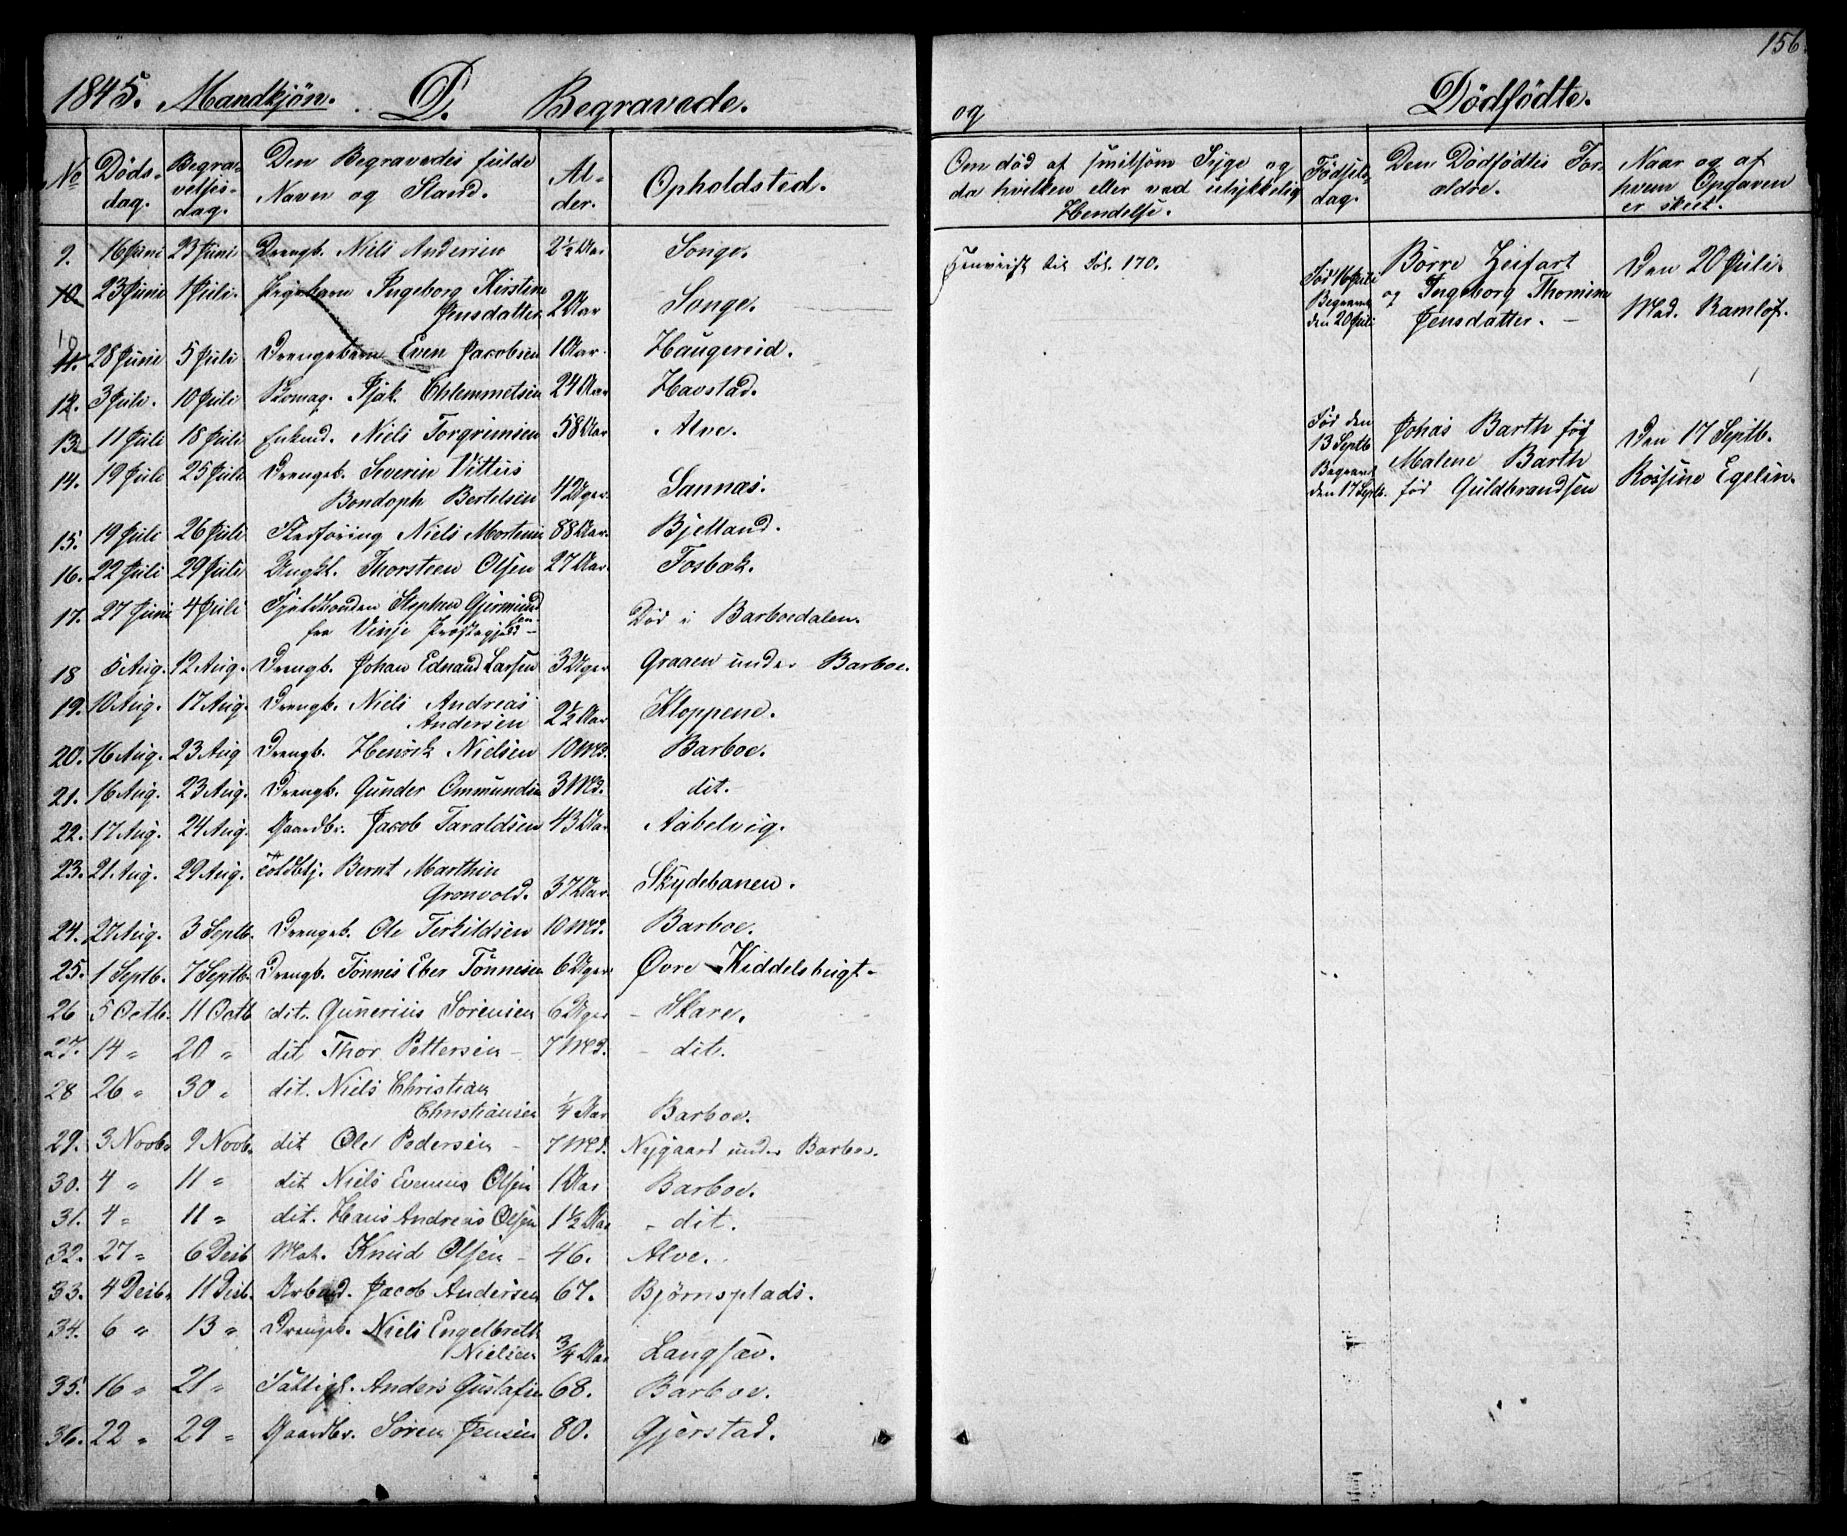 156
1845. Mandkjøn. D. Begravede. og Dødfødte.
No Dødsdag. Begravelsesdag. Den Begravedes fulde Navn og Stand. Alder. Opholdsted. Om død af smitsom Syge og da hvilken eller ved ulykkelig Hendelse. Fødselsdag. Den Dødfødtes Forældre. Naar og af hvem Opgaven er skeet.
9. 16 Juni 23 Juni Drengb. Niels Andersen 2½ Aar Songe.
10 23 Juni 1 Juli. Pigebarn Ingeborg Kirstine
Jensdatter 2 Aar Songe. Henviist til Fol. 170.
10
11. 28 Juni 5 Juli Drengebarn Even Jacobsen 1 Aar. Haugereid.
12. 3 Juli. 10 Juli Skomag. Isak Chlemmetsen 24 Aar Havstad.
13. 11 Juli 18 Juli Enkmd. Niels Torgrimsen 58 Aar Alve.
14. 19 Juli 25 Juli Drengeb. Severin Vittus
Bondoph Bertelsen 4 Uger. Sannæs.
15. 19 Juli 26 Juli Niels Mortensen 88 Aar. Bjelland.
16. 22 Juli 29 Juli Ungk. Thorsteen Olsen 27 Aar. Fosbæk.
17. 27 Juni 4 Juli Stephen Gjermund
sen
fra Vinje Præstegjeld Død i Barboedalen.
18 5 Aug. 12 Aug. Drengb. Johan Ednard Larsen 3 Uger Graaen under Barboe.
19. 10 Aug. 17 Aug. Drengb. Niels Andreas
Andersen 2½ Aar Kloppene.
20. 16 Aug. 23 Aug Drengb. Henrik Nielsen 10 Md. Barboe.
21. 16 Aug. 23 Aug. Drengb. Gunder Ommundsen 3 Md. dit.
22. 17 Aug. 24 Aug. Gaardbr. Jacob Taraldsen 43 Aar Aabelvig.
23. 21 Aug. 29 Aug. Toldbtj. Bernt Marthin
Gronvold. 37 Aar. Skydebanen.
24. 27 Aug. 3 Septb. Drengeb. Ole Terkildsen 10 Md. Barboe.
25. 1 Septb. 7 Septb. Drengb. Tönnes Eber Tönnesen 6 Uger Øvre Kiddelsbugt
26 5 Octb. 11 Octb dit. Gunerius Sörensen 6 Uger - Skare.
27. 14 " 20 " dit Thor Pettersen - 7 Md. - dit.
28 26 " 30 " dit. Niels Christian
Christiansen ¼ Aar Barboe.
29. 3 Novbr 9 Novb. dit Ole Pedersen - 7 Md. Nygaard under Barboe.
30. 4 " 11 " dit Niels Evenius Olsen 1 Aar Barboe.
31. 4 " 11 " dit. Hans Andreas Olsen 1½ Aar - dit.
32. 27 " 6 Desb Mat. Knud Olsen - 46. Alve.
33. 4 Desbr 11 Desb. Arbeid. Jacob Andersen 67. Bjørnsplads.
34. 6 " 13 " Drengeb. Niels Engelbreth
Nielsen ¾ Aar Langsæv.
35. 16 " 21 " Fattigl. Anders Gustafsen 68. Barboe.
36. 22 " 29 " Gaardbr. Sören Jensen 80. Gjerstad.
Fød 16 Juli
Begravet
den 20 Juli
Börre Zeifart
og Ingeborg Thomine
Jensdatter. -
Den 20 Juli.
Mad. Ramlöf.
Fød den
13 Septb
Begravet
den 17 Septb.
Johas Barth
Malene Barth
fød Guldbrandsen
Den 17 Septb.
Rossine Egelin.